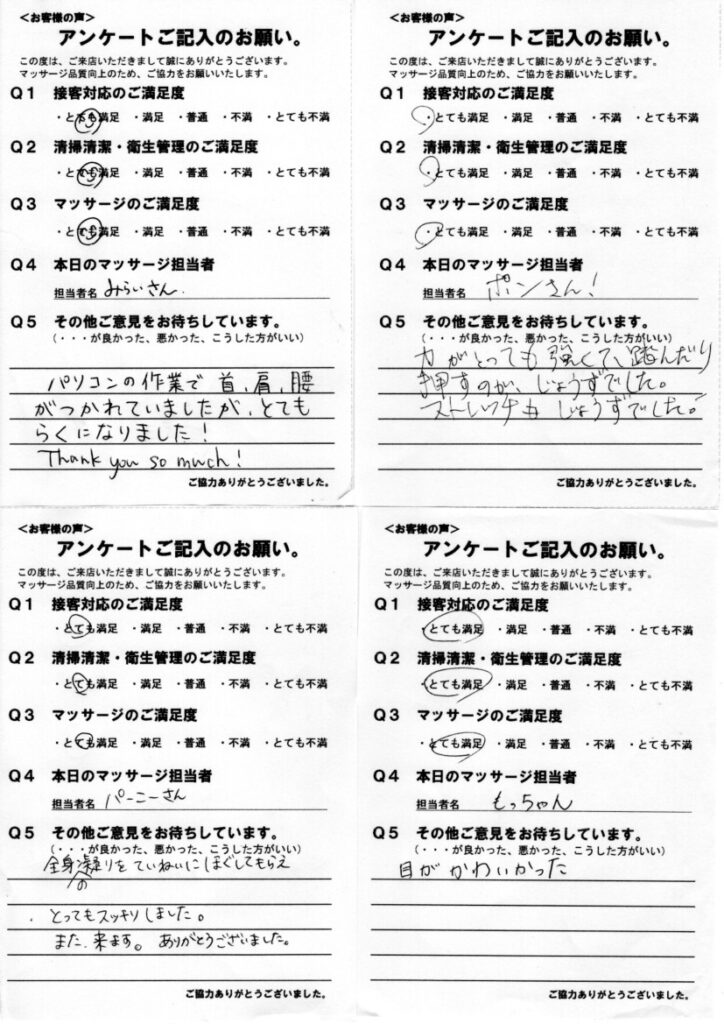 ＜お客様の声＞
アンケートご記入のお願い。
この度は、ご来店いただきまして誠にありがとうございます。
マッサージ品質向上のため、ご協力をお願いいたします。
Q1 接客対応のご満足度
・とても満足 ・満足 ・普通 ・不満 ・とても不満
Q2 清掃清潔・衛生管理のご満足度
・とても満足 ・満足 ・普通 ・不満 ・とても不満
Q3 マッサージのご満足度
・とても満足 ・満足 ・普通 ・不満 ・とても不満
Q4 本日のマッサージ担当者
担当者名 みらいさん.
Q5 その他ご意見をお待ちしています。
（・・・が良かった、悪かった、こうした方がいい）
パソコンの作業で首、肩、腰
がつかれていましたが、とても
らくになりました！
Thank you so much!
ご協力ありがとうございました。
＜お客様の声＞
アンケートご記入のお願い。
この度は、ご来店いただきまして誠にありがとうございます。
マッサージ品質向上のため、ご協力をお願いいたします。
Q1 接客対応のご満足度
・とても満足 ・満足 ・普通 ・不満 ・とても不満
Q2 清掃清潔・衛生管理のご満足度
・とても満足 ・満足 ・普通 ・不満 ・とても不満
Q3 マッサージのご満足度
・とても満足 ・満足 ・普通 ・不満 ・とても不満
Q4 本日のマッサージ担当者
担当者名 ポンさん！
Q5 その他ご意見をお待ちしています。
（・・・が良かった、悪かった、こうした方がいい）
力がとっても強くて、踏んだり
押すのが、じょうずでした。
ストレッチもじょうずでした。
ご協力ありがとうございました。
＜お客様の声＞
アンケートご記入のお願い。
この度は、ご来店いただきまして誠にありがとうございます。
マッサージ品質向上のため、ご協力をお願いいたします。
Q1 接客対応のご満足度
・とても満足 ・満足 ・普通 ・不満 ・とても不満
Q2 清掃清潔・衛生管理のご満足度
・とても満足 ・満足 ・普通 ・不満 ・とても不満
Q3 マッサージのご満足度
・とても満足 ・満足 ・普通 ・不満 ・とても不満
Q4 本日のマッサージ担当者
担当者名 パーニーさん
Q5 その他ご意見をお待ちしています。
（・・・が良かった、悪かった、こうした方がいい）
全身の凝りをていねいにほぐしてもらえ
、とってもスッキリしました。
また、来ます。ありがとうございました。
ご協力ありがとうございました。
＜お客様の声＞
アンケートご記入のお願い。
この度は、ご来店いただきまして誠にありがとうございます。
マッサージ品質向上のため、ご協力をお願いいたします。
Q1 接客対応のご満足度
・とても満足 ・満足 ・普通 ・不満 ・とても不満
Q2 清掃清潔・衛生管理のご満足度
・とても満足 ・満足 ・普通 ・不満 ・とても不満
Q3 マッサージのご満足度
・とても満足 ・満足 ・普通 ・不満 ・とても不満
Q4 本日のマッサージ担当者
担当者名 もっちゃん
Q5 その他ご意見をお待ちしています。
（・・・が良かった、悪かった、こうした方がいい）
目がかわいかった
ご協力ありがとうございました。